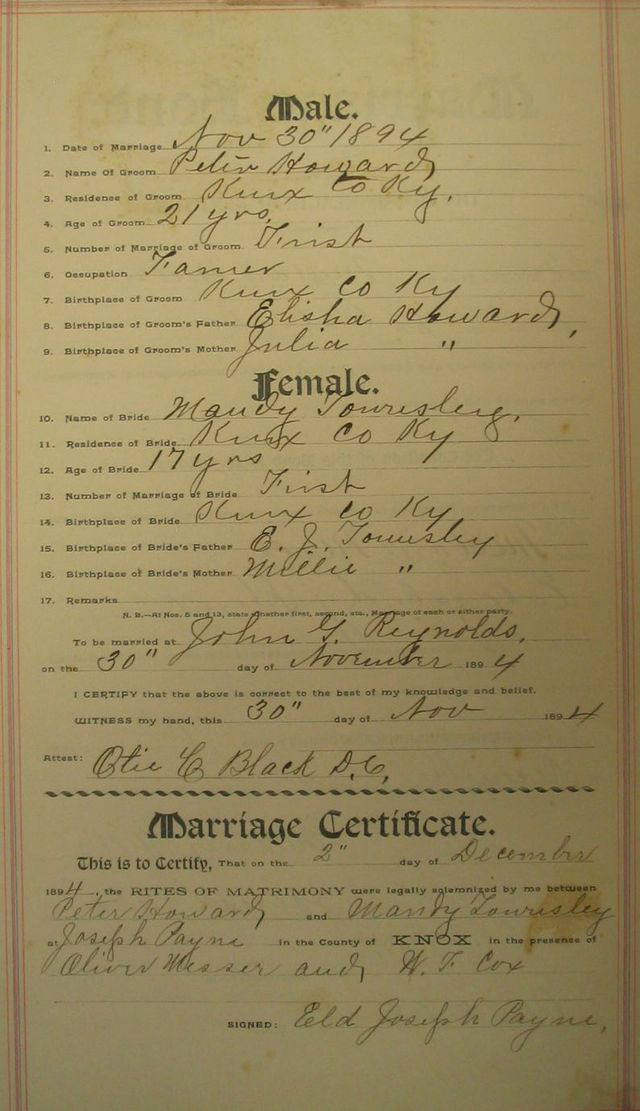 Male.
1. Date of Marriage Nov 30" 1894
2. Name Of Groom Peter Howard
3. Residence of Groom Knox Co Ky.
4. Age of Groom 21 yrs.
5. Number of Marriage of Groom First
6. Occupation Farmer
7. Birthplace of Groom Knox Co Ky
8. Birthplace of Groom's Father Elisha Howard,
9. Birthplace of Groom's Mother Julia "
Female.
10. Name of Bride Mandy Townsley.
11. Residence of Bride Knox Co Ky
12. Age of Bride 17 yrs
13. Number of Marriage of Bride First
14. Birthplace of Bride Knox Co Ky
15. Birthplace of Bride's Father E. J. Townsley
16. Birthplace of Bride's Mother Millie "
17. Remarks
N. B.—At Nos. 5 and 13, state whether first, second, etc., Marriage of each or either party.
To be married at John G. Reynolds.
on the 30" day of November 1894
I CERTIFY that the above is correct to the best of my knowledge and belief.
WITNESS my hand, this 30" day of Nov 1894
Attest: Otie C Black D.C.
Marriage Certificate.
This is to Certify, That on the 2" day of December
1894, the RITES OF MATRIMONY were legally solemnized by me between
Peter Howard and Mandy Townsley
at Joseph Payne in the County of KNOX in the presence of
Oliver Messer and W. F. Cox
SIGNED: Eld Joseph Payne,